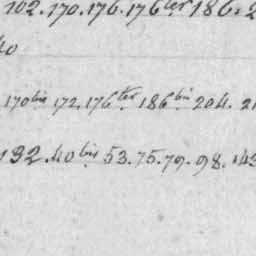 102. 170. 176. 176 ter 186. 2
40
170 bis 172. 176 ter 186 bis 204. 21
192. 40 bis 53. 75. 79. 98. 143